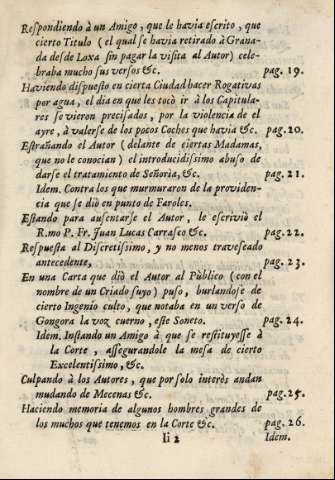 Respondiendo à un Amigo, que le havia escrito, que
cierto Titulo (el qual se havia retirado à Grana-
da desde Loxa sin pagar la visita al Autor) cele-
braba mucho sus versos &c. pag. 19.
Haviendo dispuesto en cierta Ciudad hacer Rogativas
por agua, el dia en que les tocò ir à los Capitula-
res se vieron precisados, por la violencia de el
ayre, à valerse de los pocos Coches que havia &c. pag. 20.
Estrañando el Autor (delante de ciertas Madamas,
que no le conocian) el introducidissimo abuso de
darse el tratamiento de Señoria, &c. pag. 21.
Idem. Contra los que murmuraron de la providen-
cia que se diò en punto de Faroles.
Estando para ausentarse el Autor, le escriviò el
R.mo P. Fr. Juan Lucas Carrasco &c. pag. 22.
Respuesta al Discretissimo, y no menos traveseado
antecedente, pag. 23.
En una Carta que diò el Autor al Pùblico (con el
nombre de un Criado suyo) puso, burlandose de
cierto Ingenio culto, que notaba en un verso de
Gongora la voz cuerno, este Soneto. pag. 24.
Idem. Instando un Amigo à que se restituyesse à
la Corte, assegurandole la mesa de cierto
Excelentissimo, &c.
Culpando à los Autores, que por solo interès andan
mudando de Mecenas &c. pag. 25.
Haciendo memoria de algunos hombres grandes de
los muchos que tenemos en la Corte &c. pag. 26.
Ii 2 Idem.